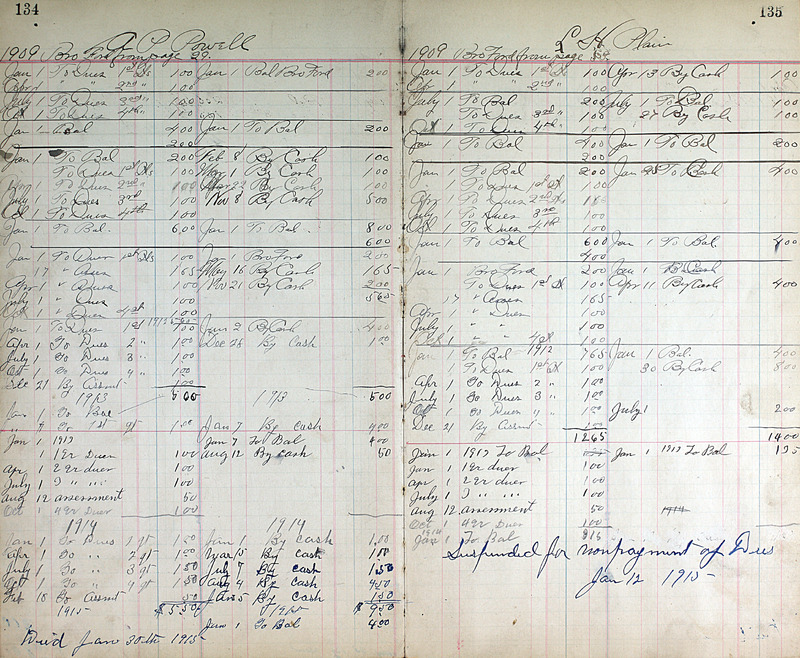 134
A P Powell
1909 Bro Ford from page 29.
Jan 1 To Dues 1st Qr 100 Jan 1 Bal Bro Ford 200
April " " 2nd " 100
July 1 To Dues 3rd " 100
Oct 1 To Dues 4th " 100
Jan 1 Bal 400 Jan 1 To Bal 200
200
Jan 1 To Bal 200 Feb 8 By Cash 100
To Dues 1st 100 May 1 By Cash 100
To Dues 2nd 100 22 By Cash 100
July 1 To Dues 3rd 100 Nov 8 By Cash 500
Oct 1 To Dues 4th 100
Jan 1 To Bal. 600 Jan 1 To Bal. 800
600
Jan 1 To Dues 1st 100 Jan 1 Bro Ford 200
17 " 165 May 16 By Cash 165
Apr 1 " Dues 100 Nov 21 By Cash 200
July 1 " Dues 100 565
" Dues 4th 100
Jan 1 To Dues 1st 1912 100 Jan 2 By Cash 400
Apr 1 To Dues 2 " 100 Dec 26 By Cash 100
July 1 To Dues 3 " 100
Oct 1 To Dues 4 " 100
Dec 21 By Assmt 100
1913 500 1913 500
Jan 1 To Bal
1st qr 100 Jan 7 By cash 400
Jan 1 1913 Jan 7 To Bal 400
1 qr Dues 100 Aug 12 By cash 50
Apr 1 2 qr dues 100
July 1 3 " " " 100
Aug 12 assessment 50
Oct 1 4 qr Dues 100
1914 1914
Jan 1 To Dues 1 qt Jan 1 By cash 1.00
Apr 1 To " 2 qt Mar 15 By Cash 100
July 1 To " 3 qt 150 July 7 By cash 150
Oct 1 To " qt 150 Aug 4 By cash 450
Feb 18 To Assmt 50 Jan 5 By Cash 150
1915 $ 550 1915 $ 950
Jan 1 To Bal 400
Died Jan 30th 1915
135
L H Plair
1909 Bro Ford from page
Jan 1 To Dues 1st Qr 100 Apr 13 By Cash 100
Apr 1 " " 2nd " 100
July 1 To Bal 200 July 1 To Bal 200
To Dues 3rd " 100 27 By Cash 100
Oct To Dues 4th " 100
Jan To Bal 400 Jan 1 To Bal 200
200
Jan 1 To Bal 200 Jan 25 To Cash 400
To Dues 1st 100
Apr 1 To Dues 2nd
July 1 To Dues 3rd 100
1 To Dues 4th 100
Jan 1 To Bal 600 Jan 1 To Bal. 400
400
Jan Bro Ford 200 Jan 1 By Cash
To Dues 1st Qr 100 Apr 11 By Cash 400
17 " 165
Apr 1 " Dues 100
July 1 " " 100
" " 4th 100
Jan 1 To Bal 1912 765 Jan 1 Bal. 400
1 To Dues 1st 100 30 By Cash 800
Apr 1 To Dues 2 " 100
July 1 To Dues 3 " 100
Oct 1 To Dues 4 " 100 July 1 200
Dec 21 By Assmt 100
1265 1400
Jan 1 1913 To Bal Jan 1 1913 To Bal 135
Jan 1 1 qr dues 100
Apr 1 2 qr dues 100
July 1 3 " " " 100
Aug 12 assessment 50 1914
Oct 1 4 qr Dues 100
Jan 1 1914 To Bal
Suspended for nonpayment of Dues
Jan 12 1915